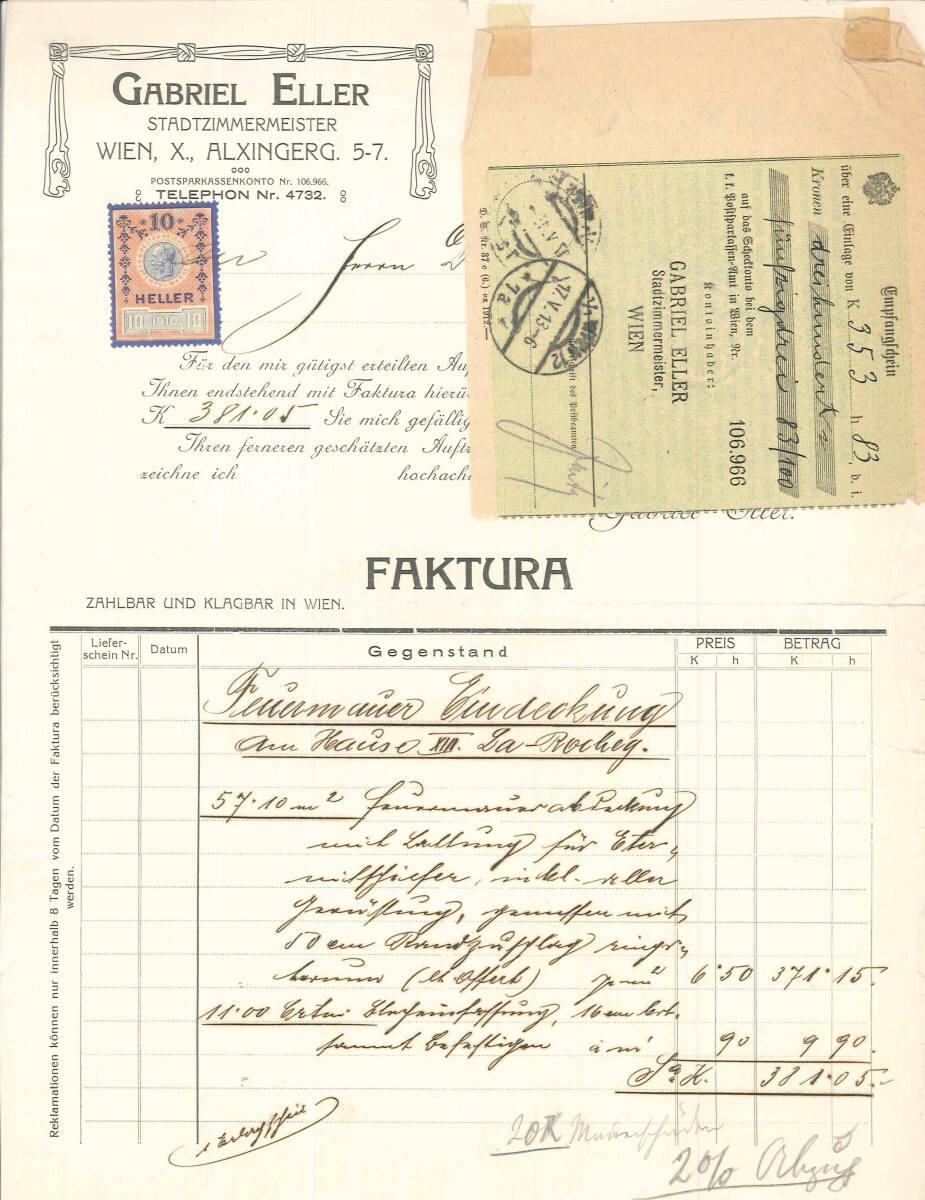 GABRIEL ELLER
STADTZIMMERMEISTER
WIEN, X., ALXINGERG. 5-7.
POSTSPARKASSENKONTO Nr. 106.966.
TELEPHON Nr. 4732.
10
HELLER
10 1910 10
Herrn
Für den mir gütigst erteilten Auf
Ihnen endstehend mit Faktura hierü
K 381·05 Sie mich gefällig
Ihren ferneren geschätzten Auftr
zeichne ich hochach
Gabriel Eller.
Empfangschein
über eine Einlage von K 353 h 83, d. i.
Kronen dreihundert
fünfzigdrei 83/100
auf das Scheckkonto bei dem
k. k. Postsparkassen-Amt in Wien, Nr. 106.966
Kontoinhaber:
GABRIEL ELLER
Stadtzimmermeister,
WIEN
17.V.13-6
* 1a *
D. S. Nr. 37 c (6.) ex 1912.
FAKTURA
ZAHLBAR UND KLAGBAR IN WIEN.
Reklamationen können nur innerhalb 8 Tagen vom Datum der Faktura berücksichtigt
werden.
Liefer-
schein Nr. Datum Gegenstand PREIS BETRAG
K h K h
Feuermauer Eindeckung
am Hause XIII. La-Rocheg.
57·10 m² Feuermauerabdeckung
mit Lattung für Eter-
nitschiefer, inkl. aller
Gerüstung, gemessen mit
50 cm Randzuschlag rings-
herum (lt. Offert) p m² 6·50 371·15.
11·00 Blecheinfassung, 16 cm
sammt Befestigen à m 90 9 90.
Sa K. 381·05.-
1 Erlagschein
20K Mauerschäden
2% Abzug